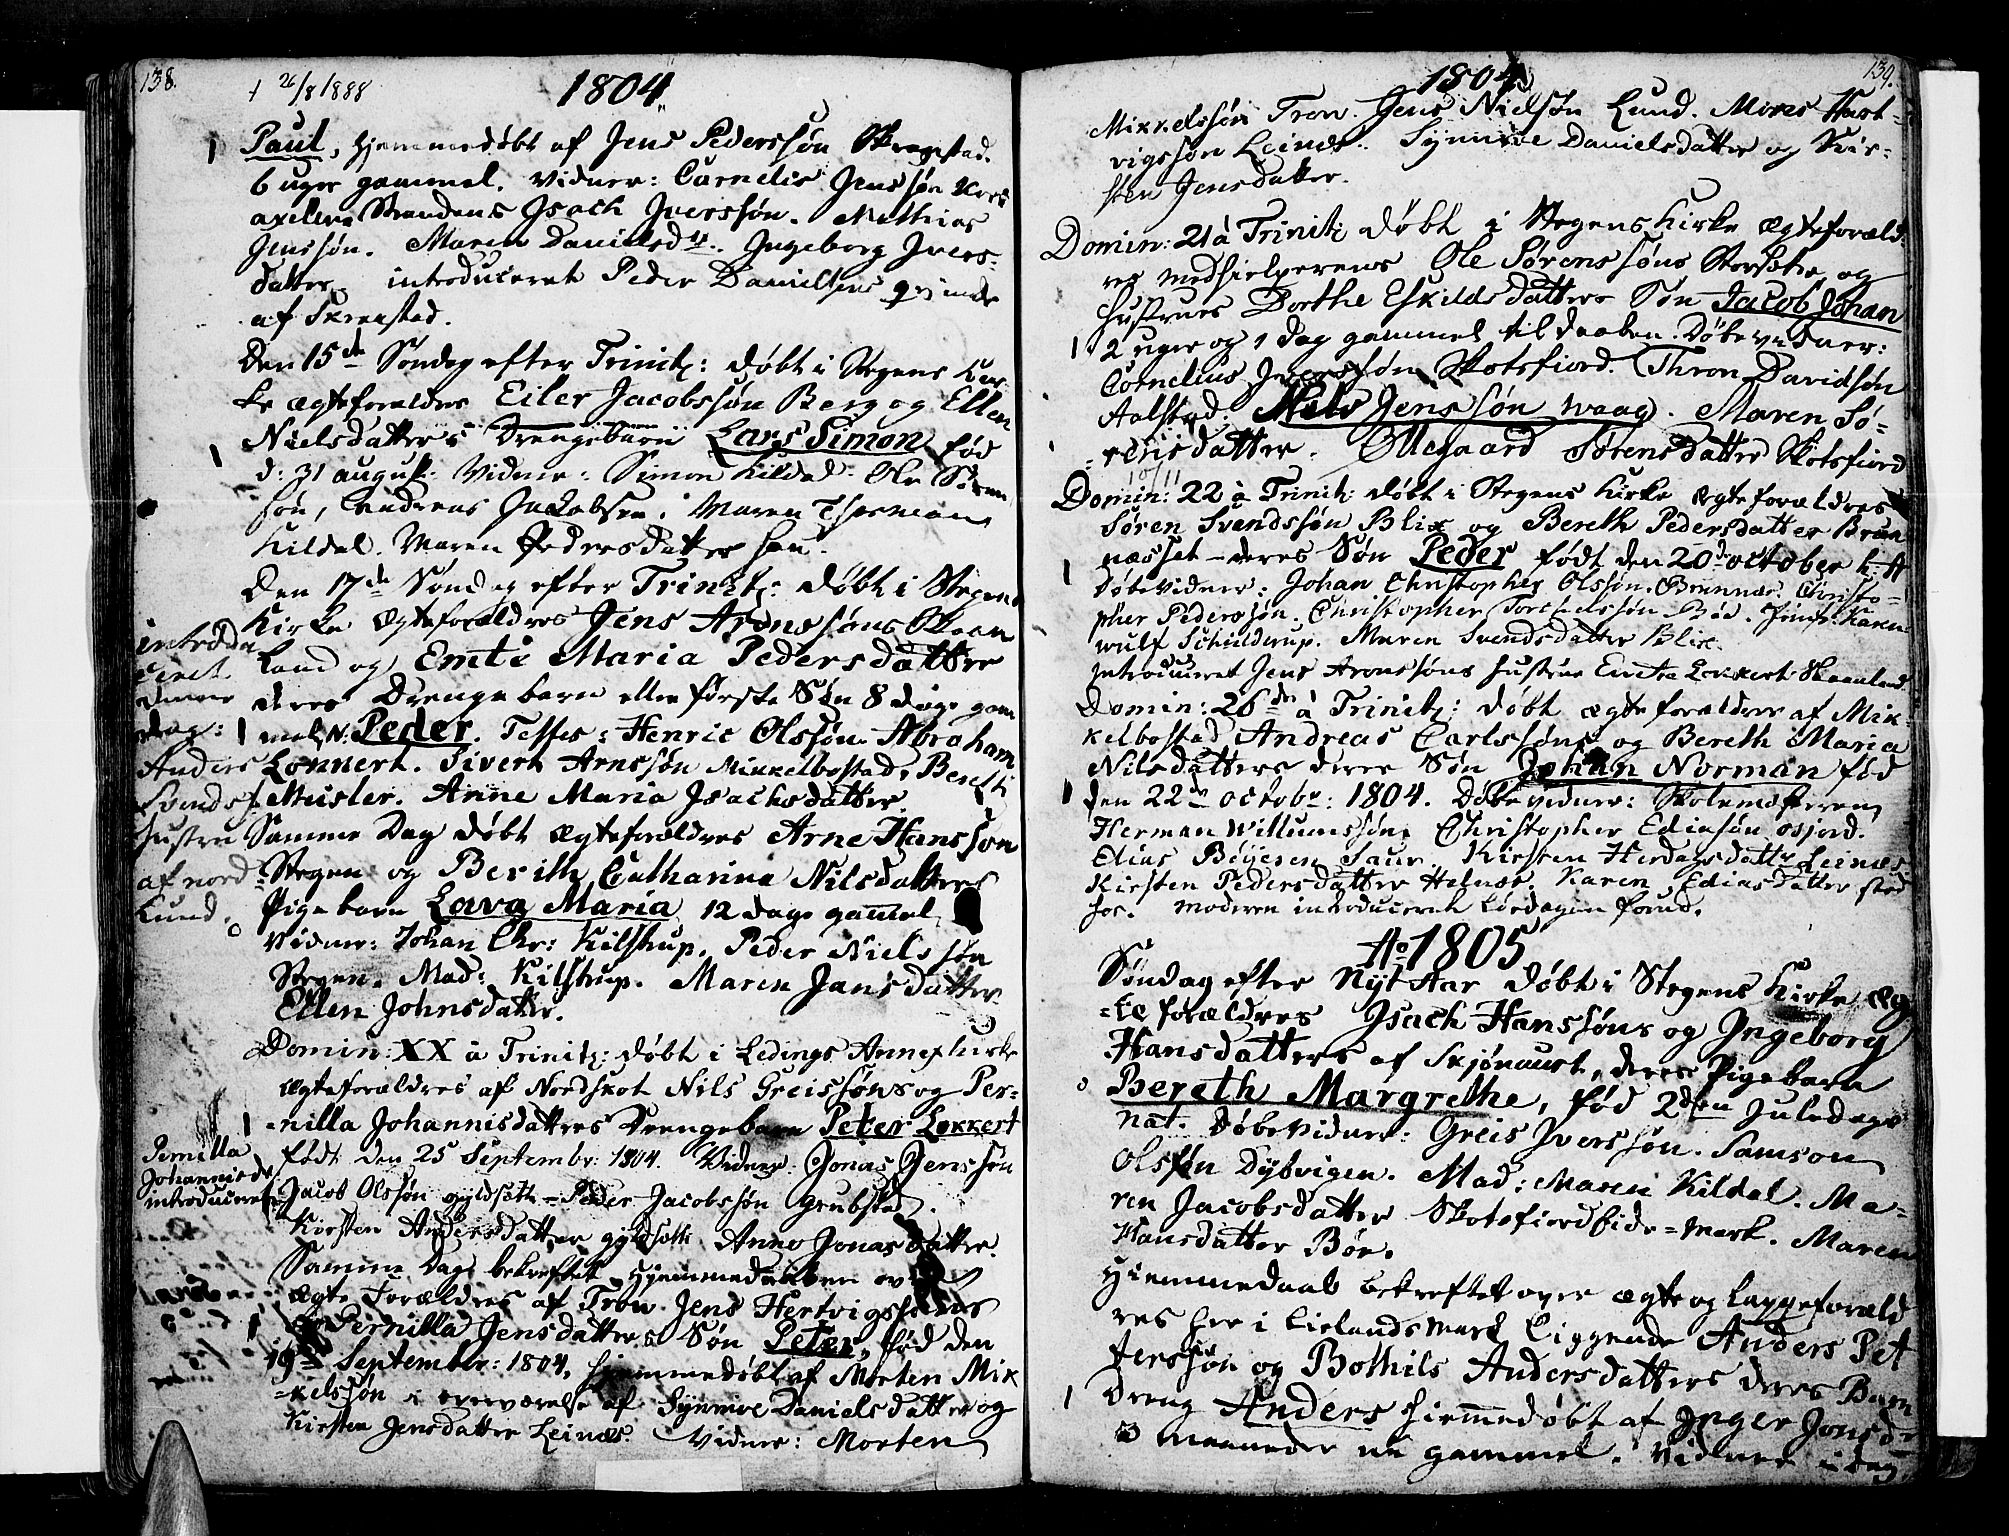 138.
1 26/8 1888
1804
1 Paul, hjemmedøbt af Jens Pederssøn Skrenstad.
6 uger gammel. Vidner: Cornelis Jenssøn
Strandens Isach Iverssøn. Mathias
Jenssøn. Maren Danielsdtr. Ingeborg Ivers-
datter. introduceret Peder Danielsens qvinde
af Skrenstad.
Den 15de Søndag efter Trinit: døbt i Stegens Kir-
ke ægteforældre Eiler Jacobssøn Berg og Ellen
Nielsdatters Drengebarn Lars Simon, fød
1 d: 31 august. Vidner: Simon Kildal. Ole Søren
søn, Andreas Jacobsen. Maren
Kildal. Maren Pedersdatter
Den 17de Søndag efter Trinit: døbt i Stegens
Kirke ægteforældres Jens Aronssøns Skaan
land og Emti Maria Pedersdatter
deres Drengebarn eller første Søn 8 dage gam
1 mel, N. Peder. Testes: Henric Olssøn. Abraham
Lonnert. Sivert Arnssøn Mikkelbostad. Bereth
Musler. Anne Maria Isachsdatter.
introdu
ceret
denne
dag:
Anders
Svends
hustru
af nord
Lund.
Samme Dag døbt ægteforældres Arne Hanssøn
Stegen og Berith Catharina Nilsdatters
Pigebarn Lava Maria 12 dage gammel
Vidner: Johan Chr: Kilstrup. Peder Nielssøn
Stegen. Mad: Kilstrup. Maren Jansdatter.
Ellen Johnsdatter.
Domin: XX à Trinit: døbt i Ledings Annex kirke
ægteforældres af Nordskot Nils Greissøns og Per-
1 nilla Johannisdatters Drengebarn Peter Lokkert
født den 25 Septembr: 1804. Vidner. Jonas Jenssøn
Jacob Olssøn gyldsett - Peder Jacobssøn Grubstad.
Kirsten Andersdatter gyldsett. Anne Jonasdatter.
Pernilla
Johannisd.
introduceret
Samme Dag bekreftet hjemmedaaben over
ægte Forældres af Tron. Jens Hertvigssøns
og Pernilla Jensdatters Søn Peter, fød den
19de September: 1804, hjemmedøbt af Morten Mik
kelssøn i overværelse af Synnøve Danielsdatter og
Kirsten Jensdatter Leinæs. Vidner: Morten
139.
1804
Mikkelssøn Tron. Jens Nielssøn Lund. Mons Hart-
vigssøn Leinæs. Synnøve Danielsdatter og Kir-
sten Jensdatter.
Domin: 21 à Trinit: døbt i Stegens Kirke ægteforæld
res medhielperens Ole Sørenssøns Storsetre og
hustrues Dorthe Eskildsdatters Søn Jacob Johan
1 2 uger og 1 dag gammel til daaben. Døbevidner:
Cornelius Jenssøn Skotsfiord. Thron Davidsøn
Aalstad. Niels Jenssøn waag. Maren Sø-
rensdatter. Olegaard Sørensdatter Skotsfiord
Domin: 22 à Trinit: døbt i Stegens Kirke ægteforældres
Søren Svendssøn Blix og Bereth Pedersdatter Brun
næsset - deres Søn Peder født den 20de october h: A
1 Døbevidner: Johan Christopher Olssøn. Brunnæs. Christo-
pher Pederssøn. Christopher Bøe. Jomfr: Karen
wulf Schielderup. Maren Svendsdatter Blix.
Introduceret Jens Aronssøns hustrue Emtra Lockert Skaanland.
Domin: 26de à Trinit: døbt ægteforældre af Mik-
kelbostad Andreas Carlssøns og Bereth Maria
Nilsdatters deres Søn Johan Norman fød
1 den 22de octobr: 1804. Døbevidner: Skolemesteren
Herman Willumssøn. Christopher Ediassøn osjord.
Edias Bøyesen Saur. Kirsten Herdagsdattr Leinæs
Kirsten Pedersdatter Helnæs. Karen Ediasdatter sted
hos. Moderen introduceret Lørdagen forud.
Ao 1805
Søndag efter Nyt Aar døbt i Stegens Kirke æg-
te forældres Isach Hanssøns og Ingeborg
Hansdatters af Skjønaust, deres Pigebarn
Bereth Margrethe, fød 2den Juledags
nat. Døbevidner: Greis Iverssøn. Samson
Olssøn Dybvigen. Mad: Maren Kildal. Ma-
ren Jacobsdatter Skotsfiordfide-mark. Maren
Hansdatter Bør.
Hiemmedaab bekreftet over ægte og lappeforæld
res her i Lielandsmark liggende Anders Pet
terssøn og Bothils Andersdatters deres Barn
1 dreng Anders hiemmedøbt af Inger Jonsdr
3 maaneder nu gammel. Vidner i dag